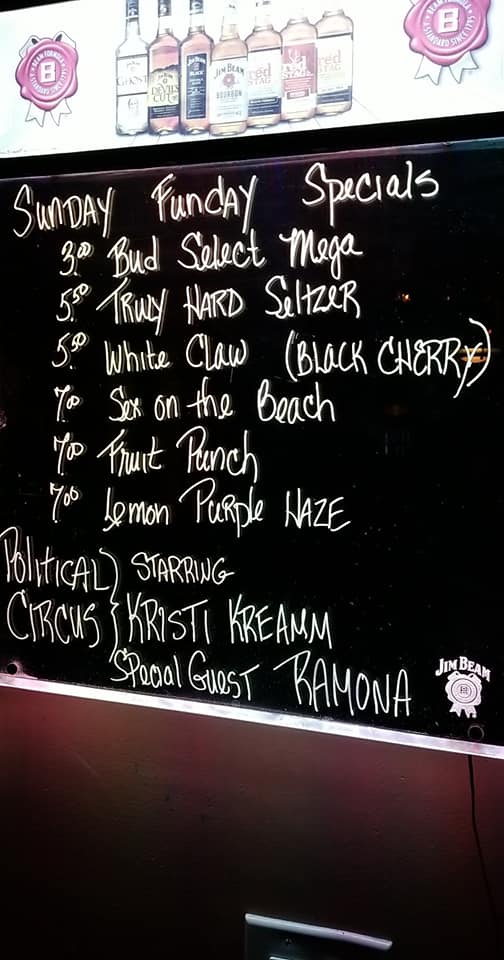 B
B
STANDARD SINCE 1795
GHOST
DEVIL'S CUT
JIM BEAM BLACK
JIM BEAM
BOURBON
red STAG
red STAG
red STAG
SUNDAY FUNDAY Specials
3.00 Bud Select Mega
5.50 TRULY HARD SELTZER
5.50 White CLAW (BLACK CHERRY)
7.00 Sex on the Beach
7.00 Fruit Punch
7.00 Lemon Purple HAZE
POLITICAL } STARRING
CIRCUS } KRISTI KREAMM
SPECIAL GUEST RAMONA
JIM BEAM
B